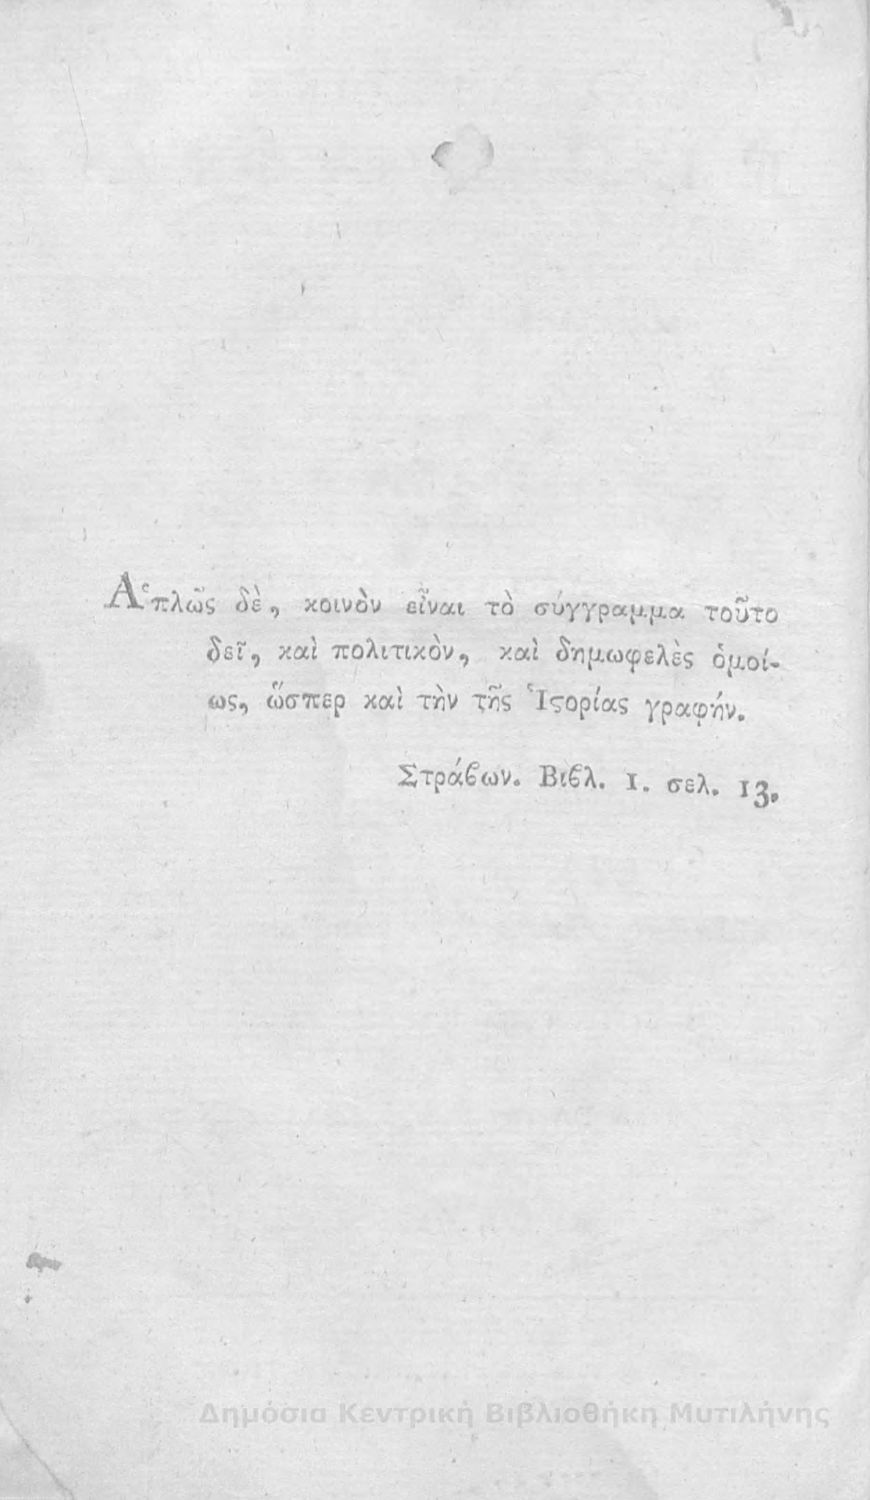 Ἁπλῶς δὲ, κοινὸν εἶναι τὸ σύγγραμμα τοῦτο
δεῖ, καὶ πολιτικὸν, καὶ δημωφελὲς ὁμοί-
ως, ὥσπερ καὶ τὴν τῆς Ἱϛορίας γραφήν.
Στράϐων. Βιϐλ. 1. σελ. 13.
Δημόσια Κεντρική Βιβλιοθήκη Μυτιλήνης